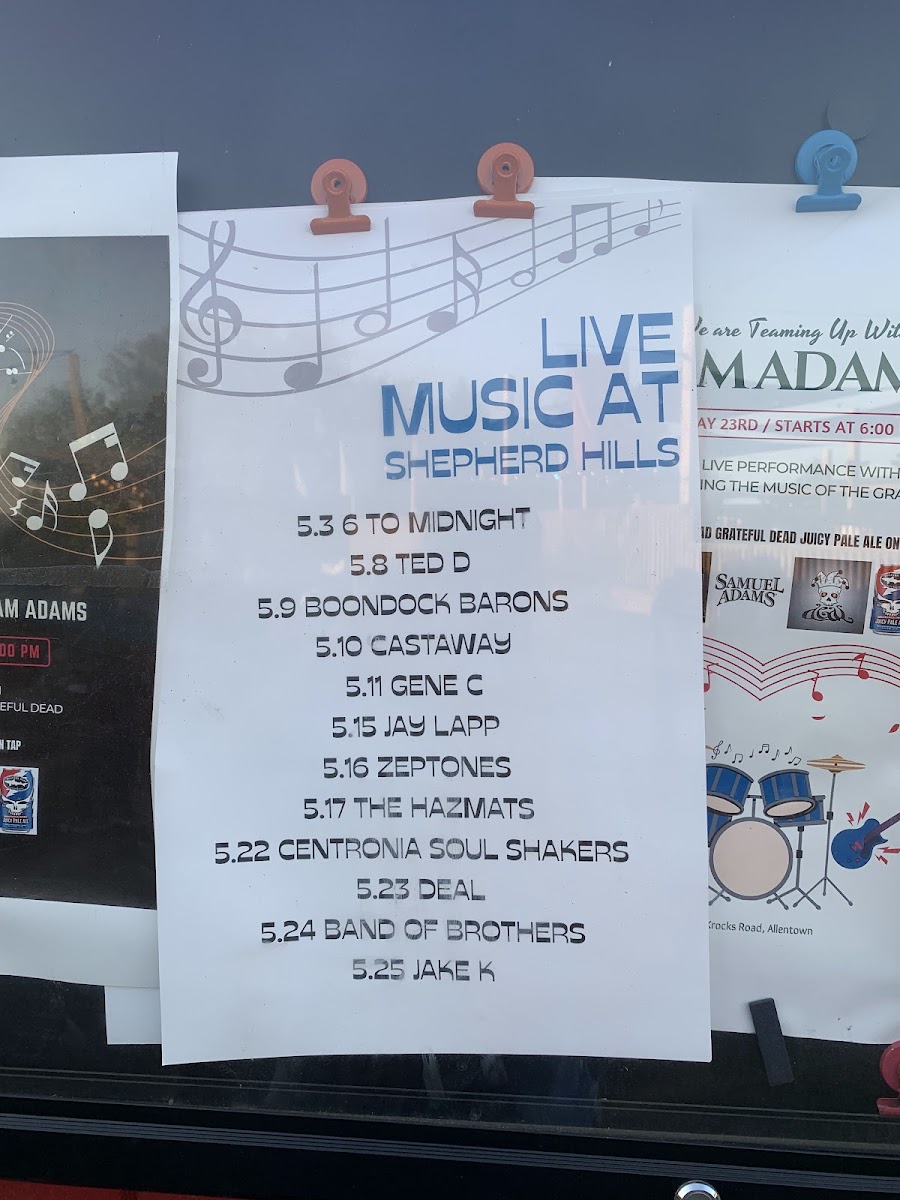 LIVE
MUSIC AT
SHEPHERD HILLS
5.3 6 TO MIDNIGHT
5.8 TED D
5.9 BOONDOCK BARONS
5.10 CASTAWAY
5.11 GENE C
5.15 JAY LAPP
5.16 ZEPTONES
5.17 THE HAZMATS
5.22 CENTRONIA SOUL SHAKERS
5.23 DEAL
5.24 BAND OF BROTHERS
5.25 JAKE K
AM ADAMS
00 PM
EFUL DEAD
N TAP
e are Teaming Up Wit
M ADAM
AY 23RD / STARTS AT 6:00
LIVE PERFORMANCE WITH
ING THE MUSIC OF THE GRA
AD GRATEFUL DEAD JUICY PALE ALE ON
SAMUEL
ADAMS
Krocks Road, Allentown